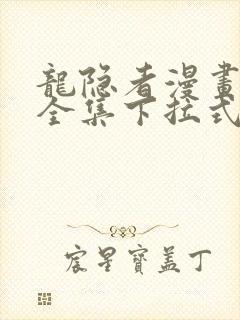 龍隐者漫畫
全集下拉式
宸星寶盖丁